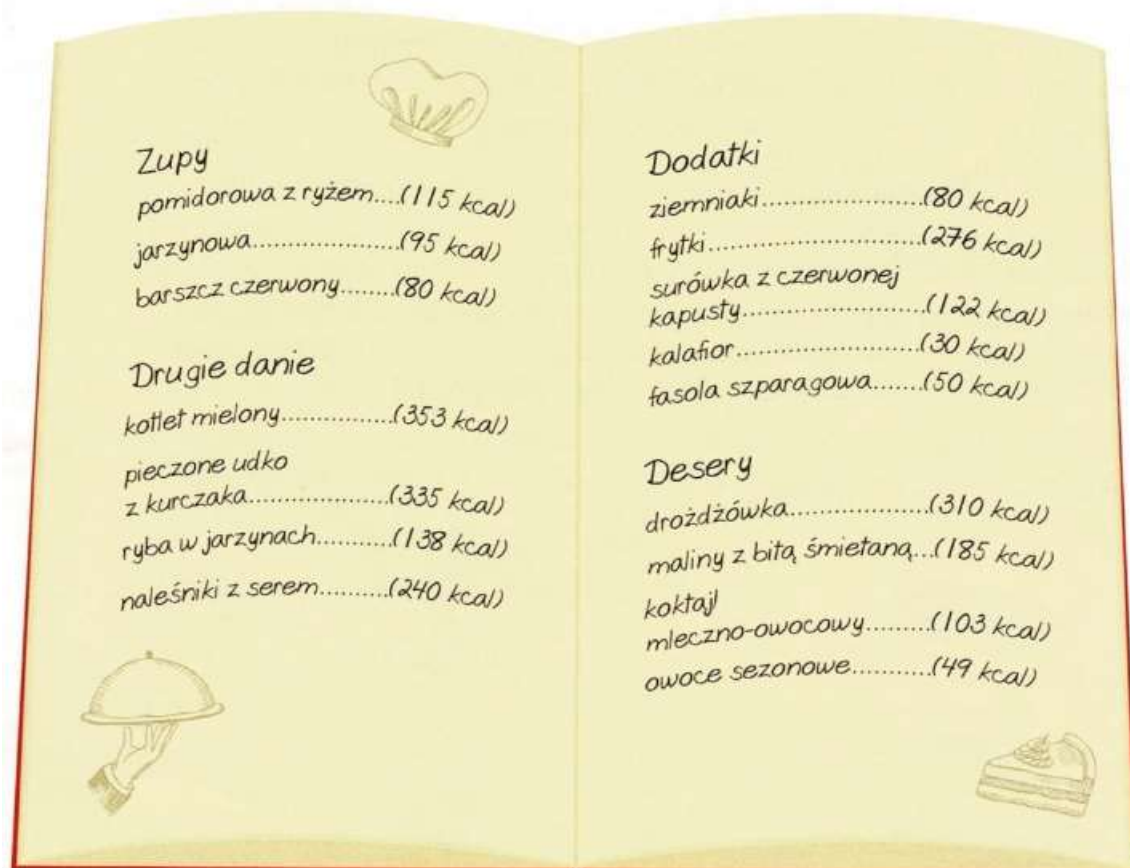 Zupy
pomidorowa z ryżem....(115 kcal)
jarzynowa.....................(95 kcal)
barszcz czerwony........(80 kcal)
Drugie danie
kotlet mielony................(353 kcal)
pieczone udko
z kurczaka....................(335 kcal)
ryba w jarzynach...........(138 kcal)
naleśniki z serem..........(240 kcal)
Dodatki
ziemniaki.......................(80 kcal)
frytki..............................(276 kcal)
surówka z czerwonej
kapusty..........................(122 kcal)
kalafior..........................(30 kcal)
fasola szparagowa.......(50 kcal)
Desery
drożdżówka....................(310 kcal)
maliny z bitą śmietaną...(185 kcal)
koktajl
mleczno-owocowy.........(103 kcal)
owoce sezonowe............(49 kcal)